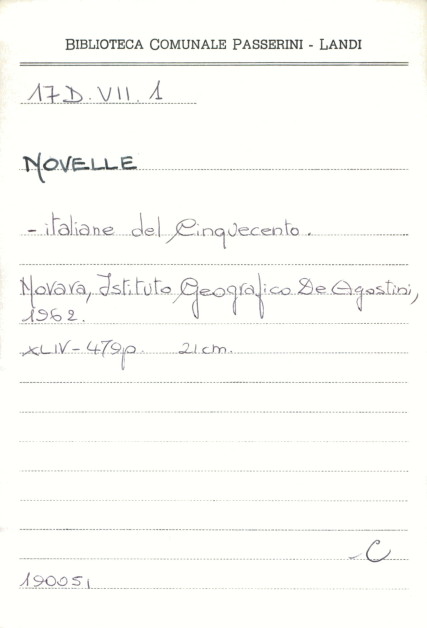 BIBLIOTECA COMUNALE PASSERINI - LANDI
17 D. VII. 1
NOVELLE
- italiane del Cinquecento.
Novara, Istituto Geografico De Agostini,
1962.
XLIV - 479p. 21 cm.
C
190051